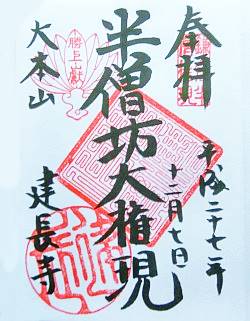 奉拝
平成二十七年
十二月七日
半僧坊大権現
勝上献
大本山
建長寺